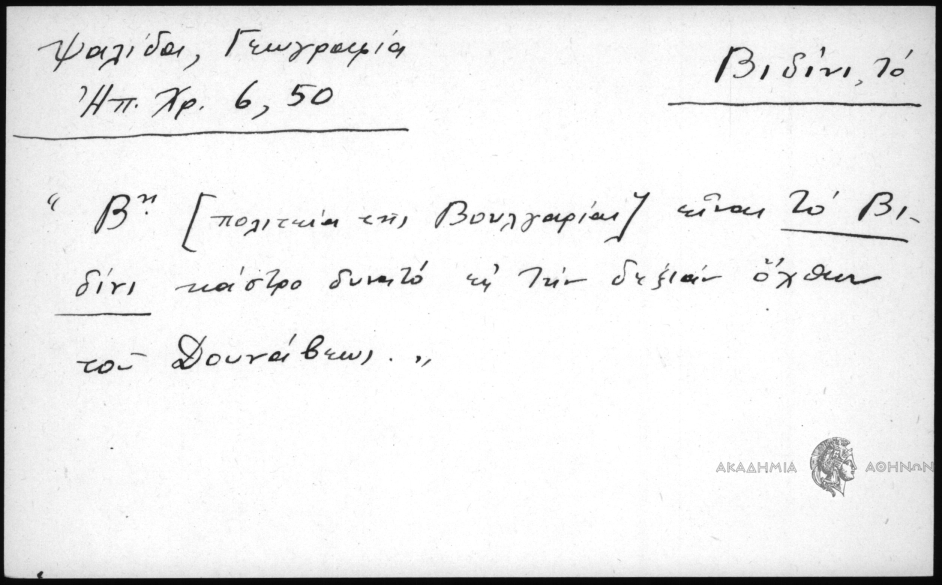 Ψαλίδα, Γεωγραφία
Ἠπ. Χρ. 6, 50
Βιδίνι, τό
“ Βα. [πολιτεία τῆς Βουλγαρίας] εἶναι τό Βι-
δίνι κάστρο δυνατό εἰς τήν δεξιάν ὄχθην
τοῦ Δουνάβεως. „
ΑΚΑΔΗΜΙΑ ΑΘΗΝΩΝ